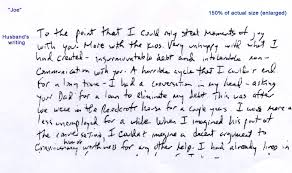 "Joe"
150% of actual size (enlarged)
Husband's
writing
To the point that I could only steal moments of joy
with you. More with the kids. Very unhappy with what I
had created - insurmountable debt and intolerable non-
communication with you. A horrible cycle that I could not end
for a long time - I had a conversation in my head - asking
your Dad for a loan to eliminate my debt. This was after
we were in the house for a couple years. I was more or
less unemployed for a while. When I imagined his part of
the conversation, I couldn't imagine a decent argument to
how I was worth for any other help. I had already